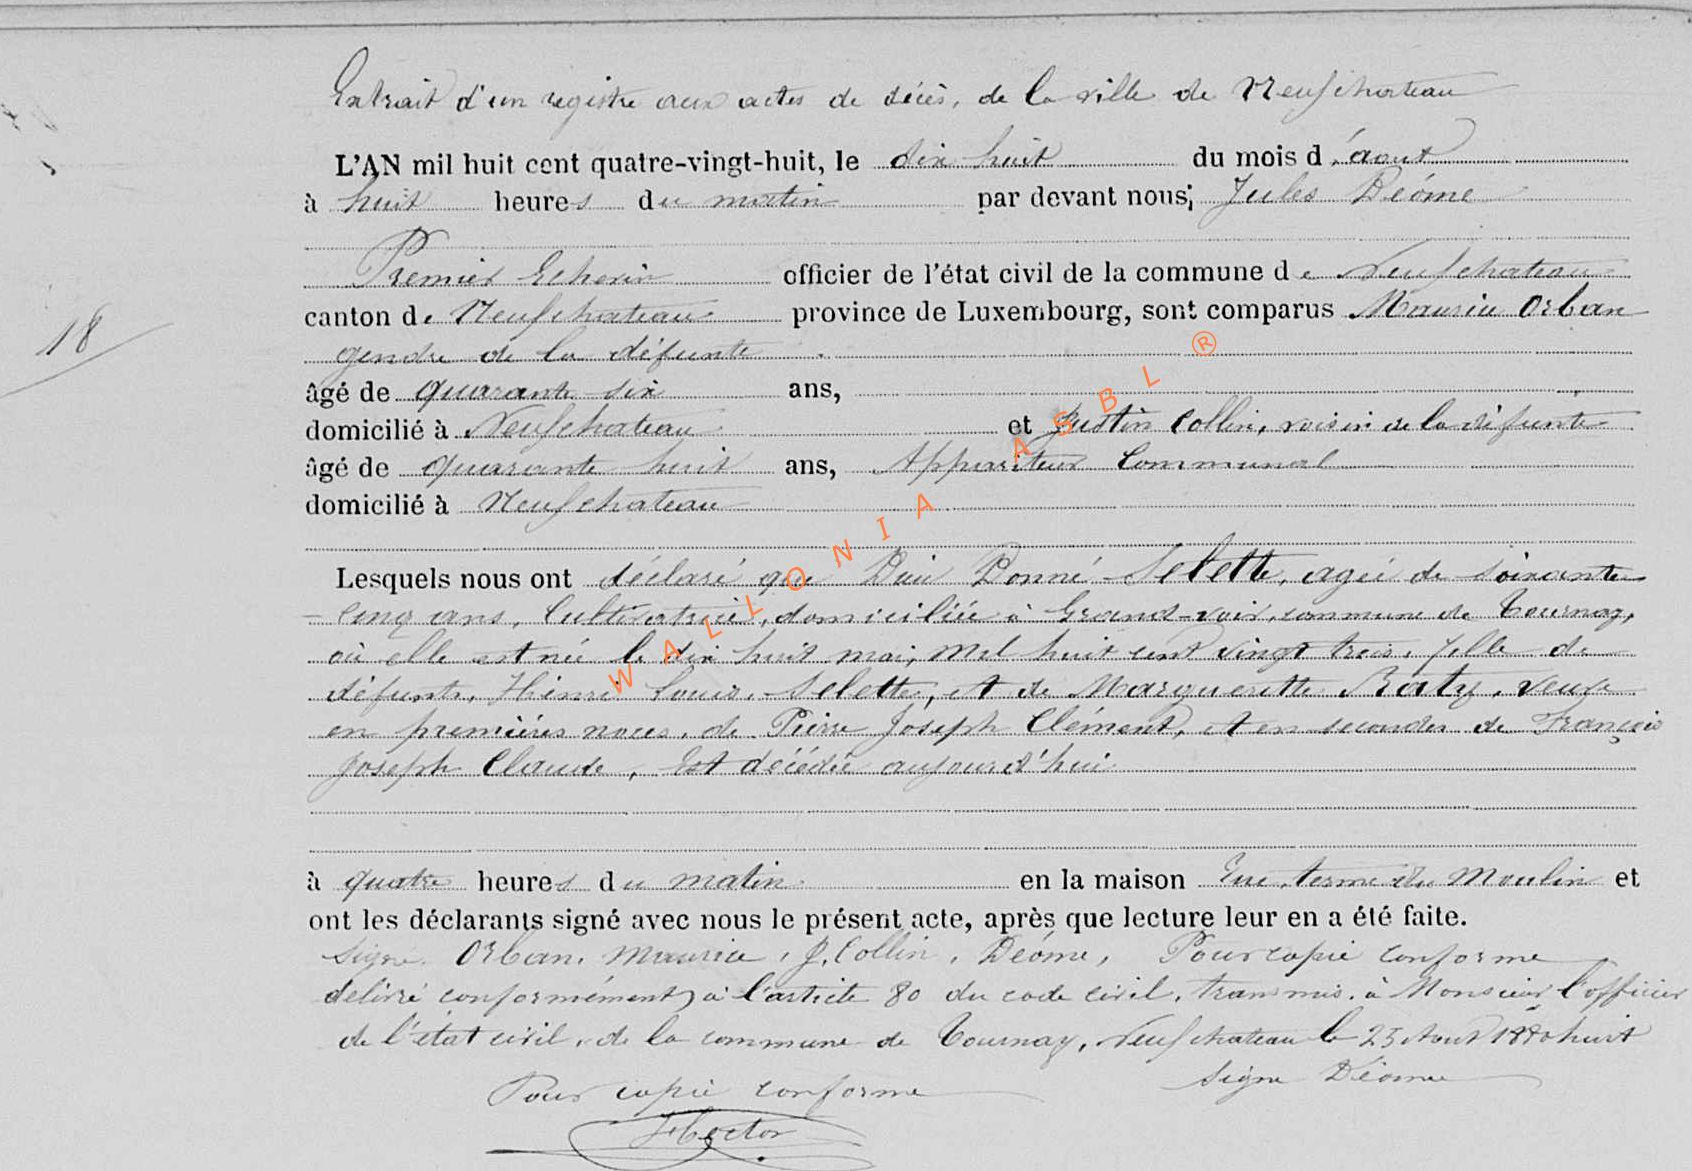 Extrait d'un registre aux actes de décès, de la ville de Neufchateau
L'AN mil huit cent quatre-vingt-huit, le dix huit du mois d'aout
à huit heures du matin par devant nous; Jules Déôme
Premier Echevin officier de l'état civil de la commune de Neufchateau
18
canton de Neufchateau province de Luxembourg, sont comparus Maurice Orban
gendre de la défunte
âgé de quarante six ans,
domicilié à Neufchateau et Justin Collin, voisin de la défunte
âgé de quarante huit ans, Appariteur Communal
domicilié à Neufchateau
Lesquels nous ont déclaré que Donné Selette, agée de soixante
cinq ans, Cultivatrice, domiciliée à Grand-voir, commune de Tournay,
où elle est née le dix huit mai, mil huit cent vingt trois, fille de
défunts, Henri Louis Selette, et de Marguerette Baty, veuve
en premières noces, de Pierre Joseph Clément, et en secondes de François
Joseph Claude, Est décédée aujourd'hui
à quatre heures du matin en la maison du Moulin et
ont les déclarants signé avec nous le présent acte, après que lecture leur en a été faite.
Signé Orban, Maurice, J, Collin, Déôme, Pour copie conforme
délivré conformément à l'article 80 du code civil, transmis à Monsieur l'officier
de l'état civil, de la commune de Tournay, Neufchateau le 25 Aout huit
Signé Déôme
Pour copie conforme
WALLONIA ASBL ®